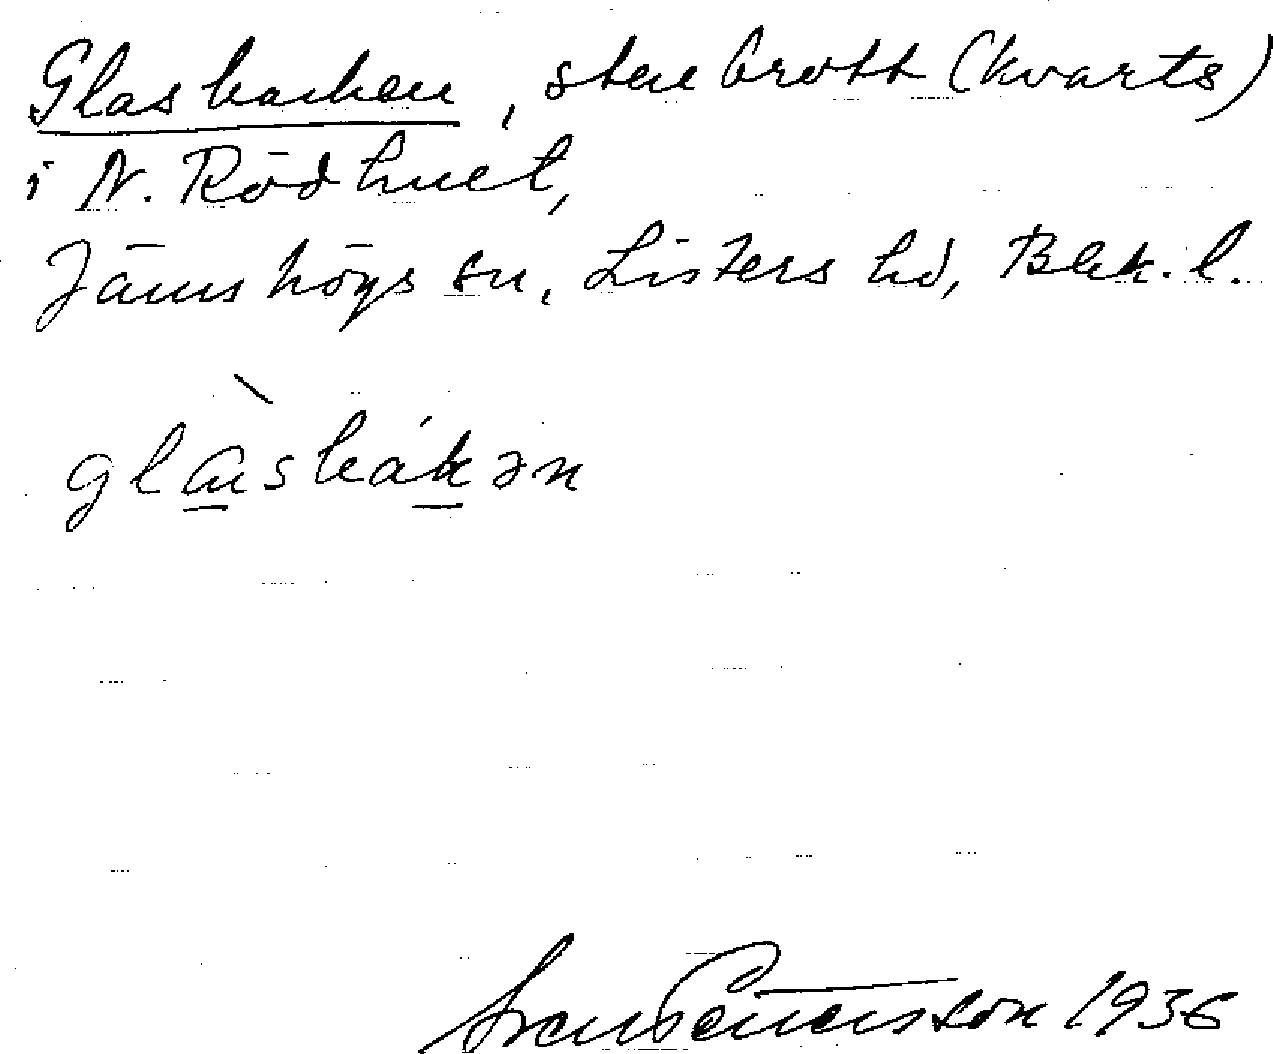 Glasbacken, stenbrott (kvarts)
i N. Rödhult,
Jämshögs sn, Listers hd, Blek. l.
glàsbákən
Sven Pettersson 1936